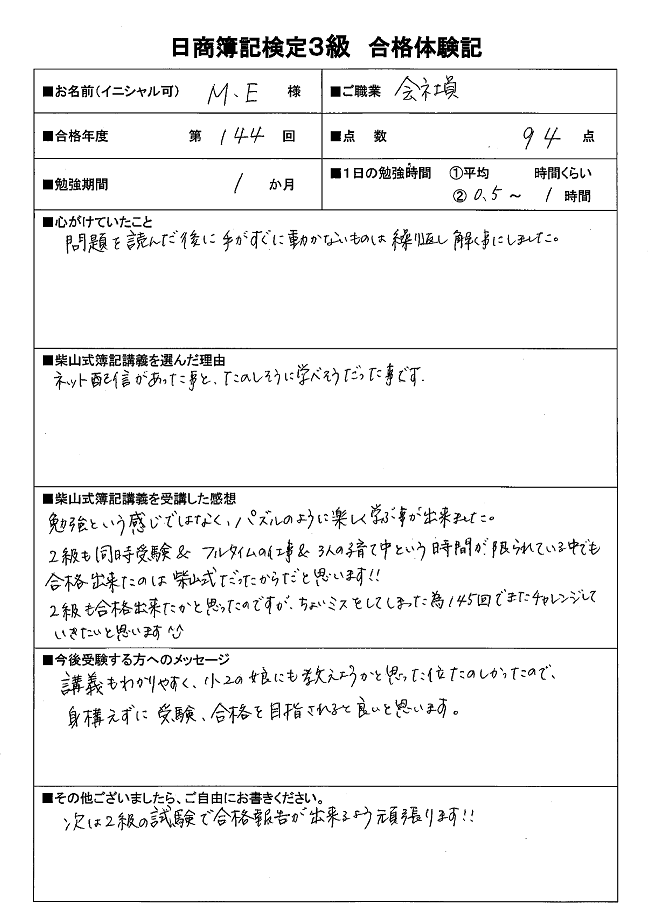 日商簿記検定3級 合格体験記
■お名前(イニシャル可) M.E 様
■ご職業 会社員
■合格年度 第 144 回
■点 数 94 点
■勉強期間 1 か月
■1日の勉強時間 ①平均 時間くらい
② 0.5 ～ 1 時間
■心がけていたこと
問題を読んだ後に手がすぐに動かないものは繰り返し解く事にしました。
■柴山式簿記講義を選んだ理由
ネット配信があった事と、たのしそうに学べそうだった事です.
■柴山式簿記講義を受講した感想
勉強という感じではなく、パズルのように楽しく学ぶ事が出来ました。
2級も同時受験& フルタイムの仕事& 3人の子育て中という時間が限られている中でも
合格出来たのは柴山式だったからだと思います!!
2級も合格出来たかと思ったのですが、ちょいミスをしてしまった為145回でまたチャレンジして
いきたいと思います
■今後受験する方へのメッセージ
講義もわかりやすく、小2の娘にも教えようかと思った位たのしかったので、
身構えずに受験、合格を目指されると良いと思います。
■その他ございましたら、ご自由にお書きください。
次は2級の試験で合格報告が出来るよう頑張ります!!